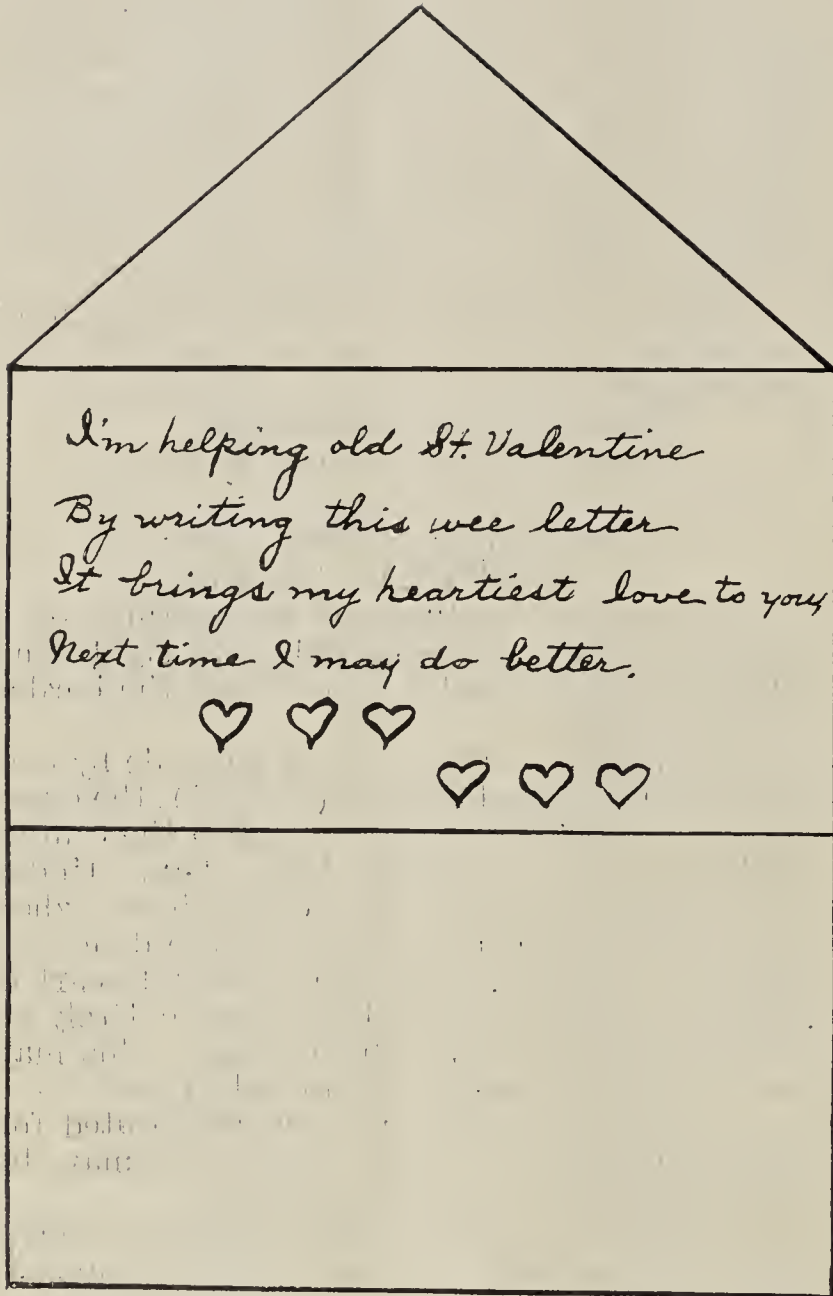 I'm helping old St. Valentine
By writing this wee letter
It brings my heartiest love to you,
Next time I may do better.